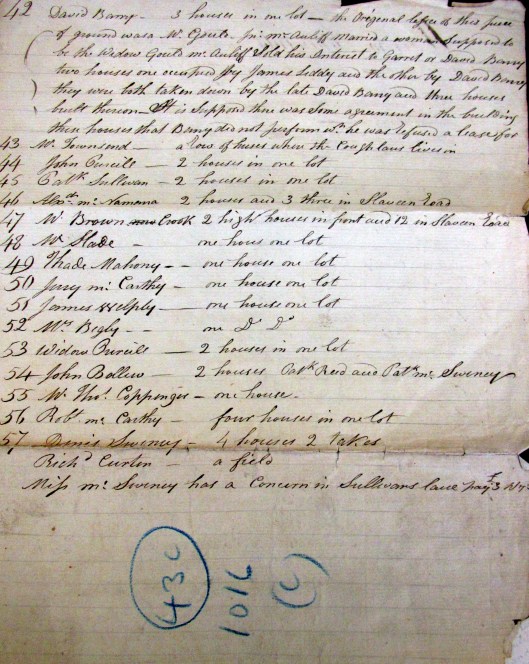 42 David Barry - 3 houses in one lot - the Original lessee of this piece
of ground was a Mr. Gouts Jnr. mc. Auliff Married a woman Supposed to
be the Widow Gouts mc. Auliff Sold his Interest to Garret or David Barry
two houses one occupied by James Leddy and the other by David Barry
they were both taken down by the late David Barry and three houses
built thereon - It is Suppose there was Some agreement in the building
these houses that Barry did not perform wh. he was refused a lease for
43 Mr. Townsend - a row of houses where the Coughlans lives in
44 John Purcils - 2 houses in one lot
45 Patk. Sullivan - 2 houses in one lot
46 mc. Namara 2 houses and 3 three in Slaveen Road
47 W. Brown Crook 2 high houses in front and 12 in Slaveen Road
48 Mr Slade - one hous one lot
49 Thade Mahony - - one house one lot
50 Jury mc. Carthy - one house one lot
51 James Welply - one house one lot
52 Mrs Begly - - one Do. Do.
53 Widow Purcils - 2 houses in one lot
54 John Bollew - 2 houses Patk. Reed and Patk. mc. Sweney
55 Mr. Thos. Coppenger - one house -
56 Robt. mc. Carthy - four houses in one lot
57 Denis Sweney - 4 houses 2 takes
Richd. Curtin - a field
Miss mc. Sweney has a Concern in Sullivans lane pays £3
43c
1016
(c)